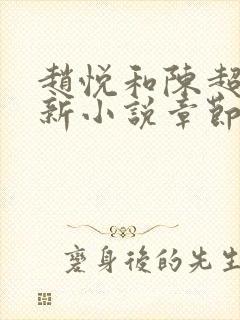 趙悅和陳超
新小說章節
磨身後的先生